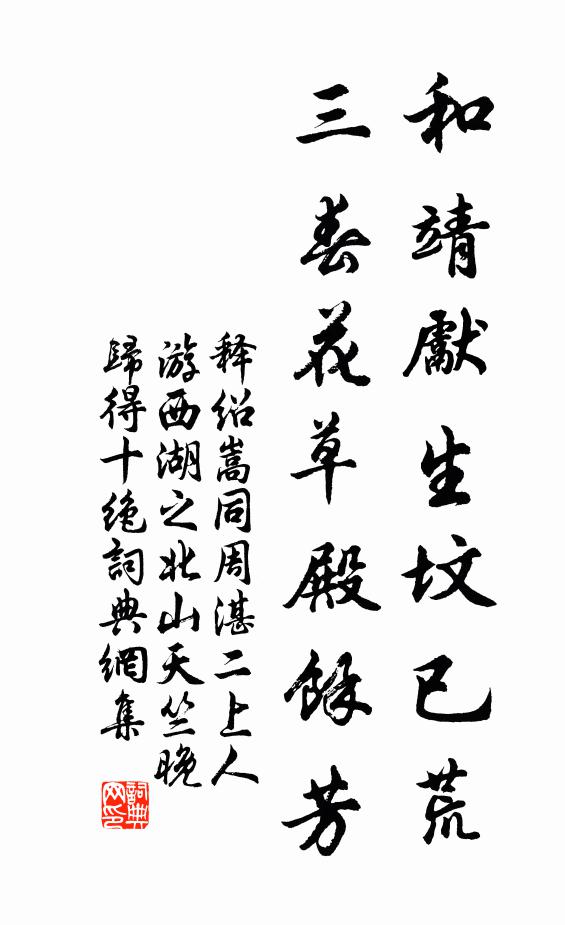 和靖獻生坟已荒
三春花草殿餘芳
释绍嵩同周湛二上人
游西湖之北山天竺晚
歸得十绝詞典網集
詞典网印